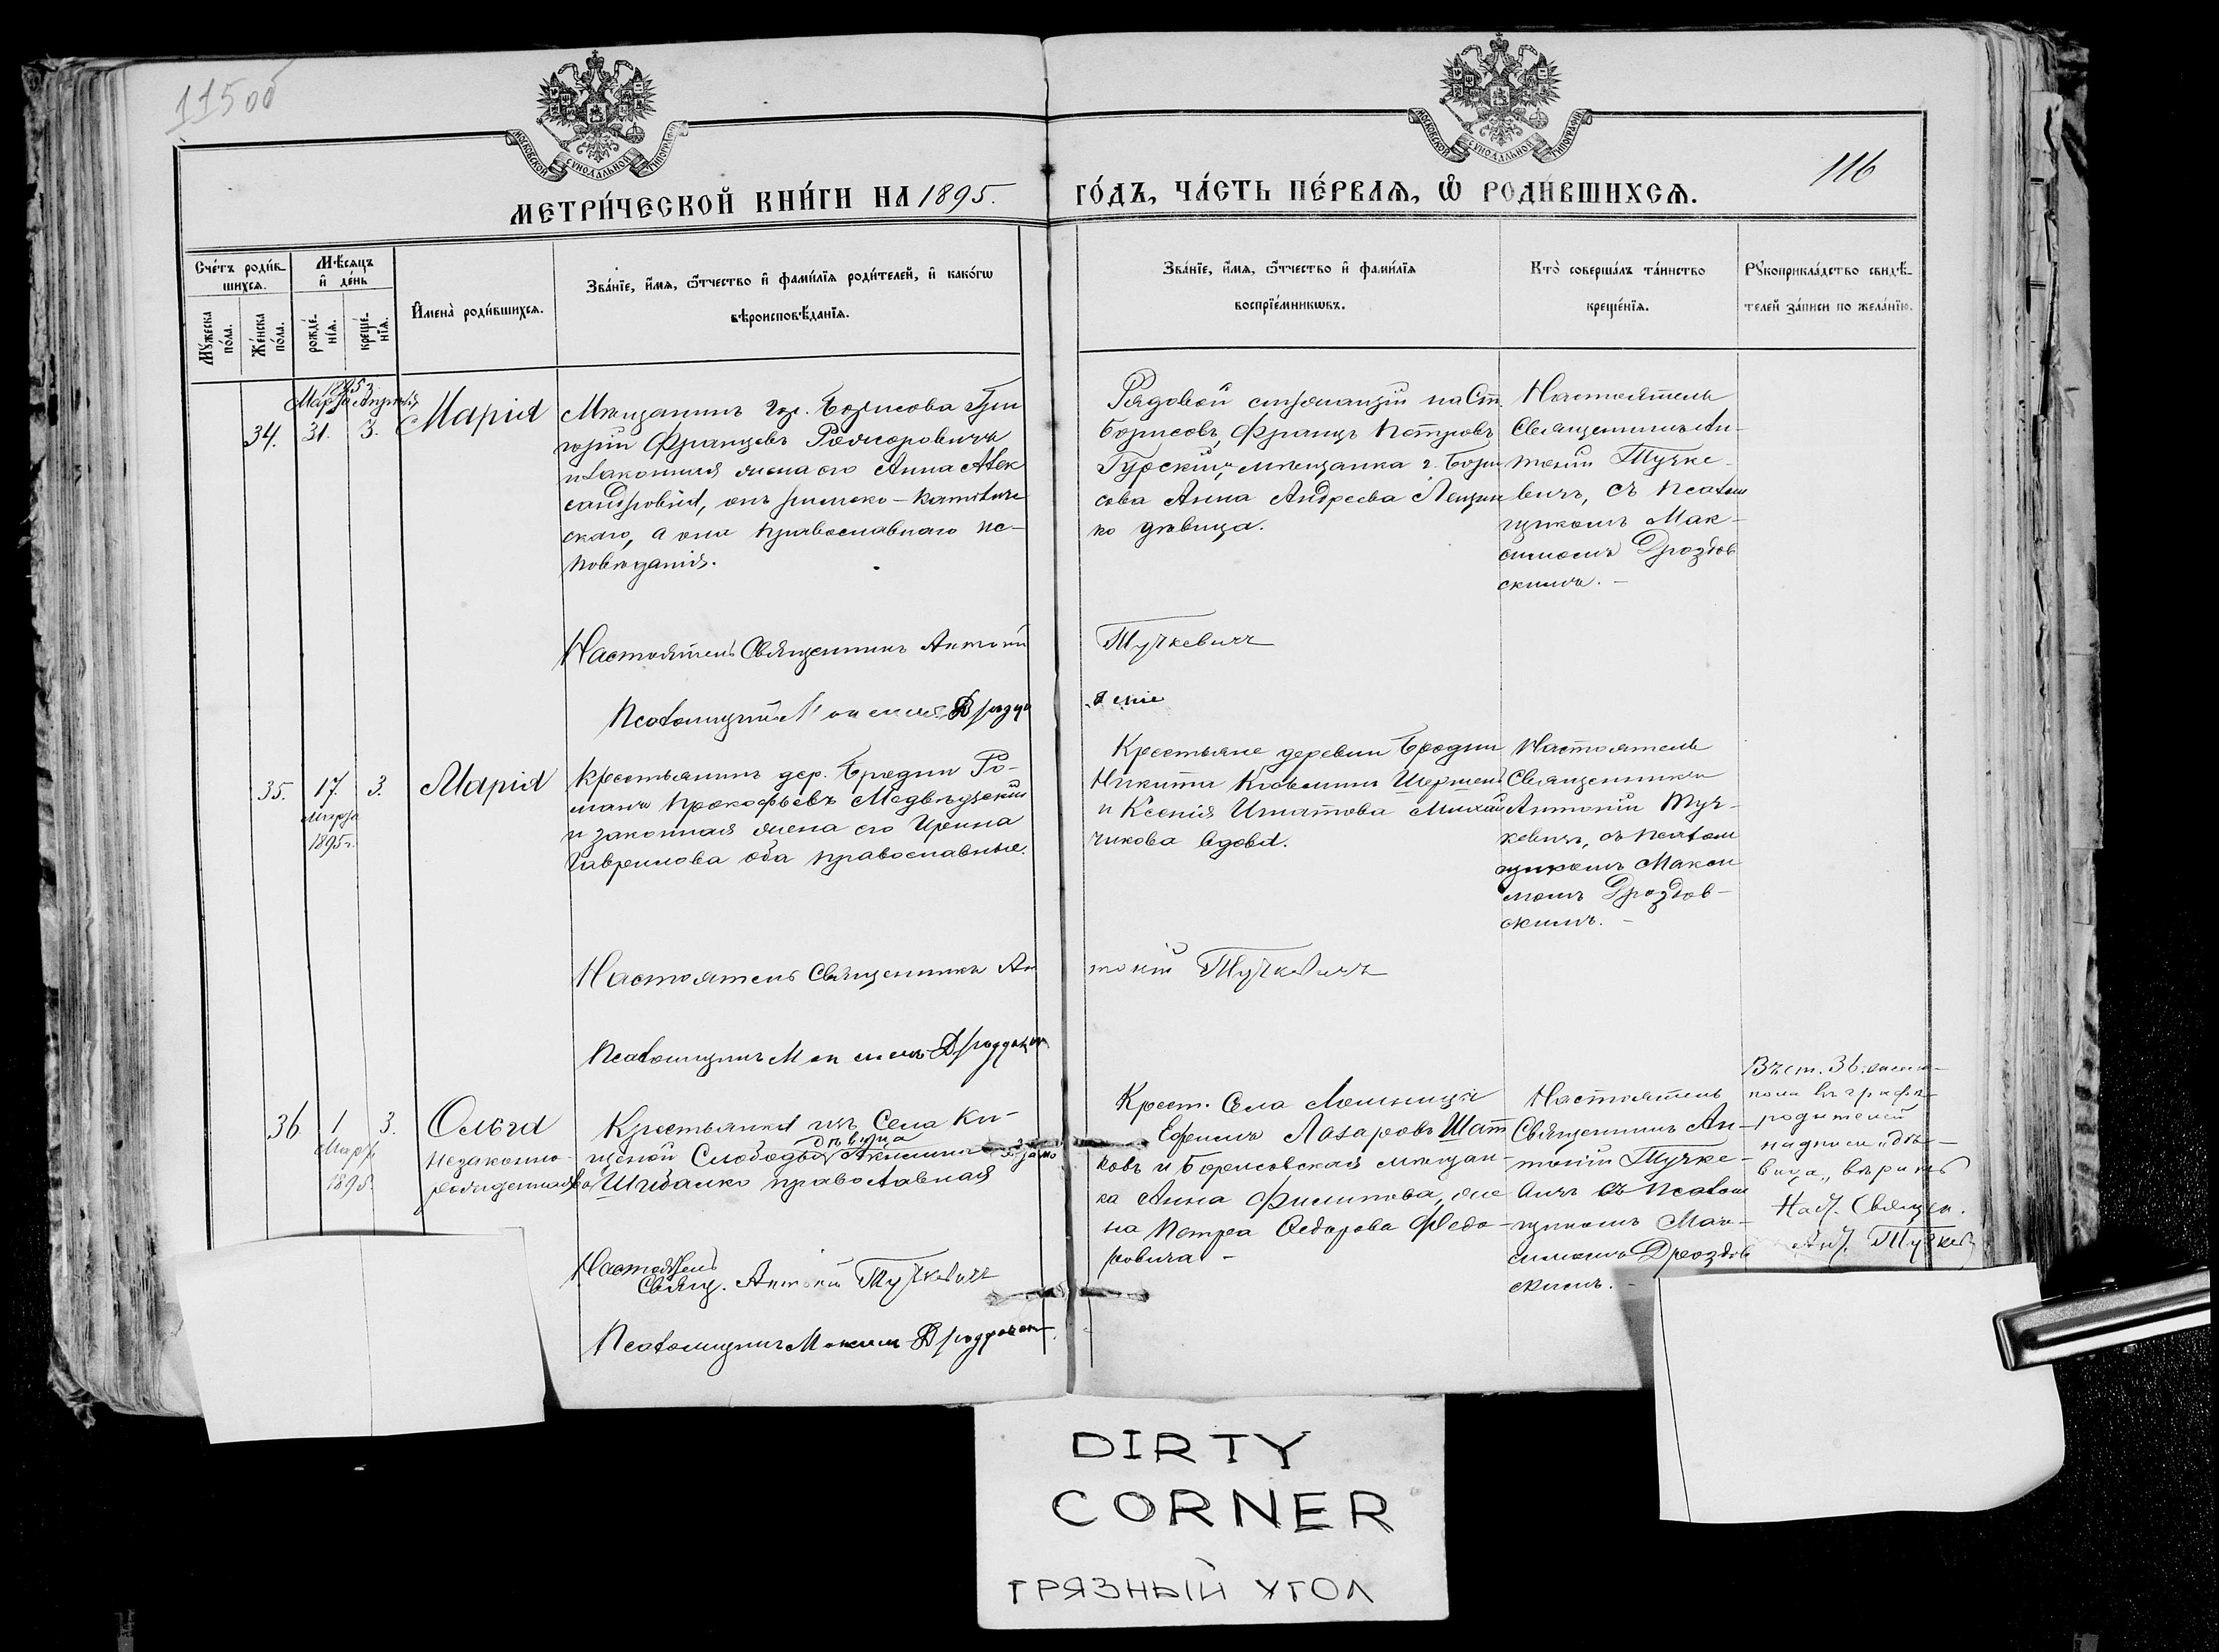 115 об
116
МОСКОВСКОЙ СУНОДАЛЬНОЙ ТИПОГРАФІИ
МОСКОВСКОЙ СУНОДАЛЬНОЙ ТИПОГРАФІИ
МЕТРИ́ЧЕСКОЙ КНИ́ГИ НА 1895.
ГО́ДЪ, ЧА́СТЬ ПЕ́РВАѦ, Ѽ РОДИ́ВШИХСѦ.
Сче́тъ роди́в-
шихсѧ.
Мꙋ́жеска по́ла.
Же́нска по́ла.
Мѣ́сѧцъ
и҆ де́нь
рожде́-
нїѧ.
креще́-
нїѧ.
И҆мена̀ роди́вшихсѧ.
Зва́нїе, и҆́мѧ, ѻ҆́тчество и҆ фами́лїѧ роди́телей, и҆ како́гѡ
вѣроисповѣ́данїѧ.
Зва́нїе, и҆́мѧ, ѻ҆́тчество и҆ фами́лїѧ
воспрїе́мникѡвъ.
Кто̀ соверша́лъ та́инство
креще́нїѧ.
Рꙋкоприкла́дство свидѣ́-
телей за́писи по жела́нїю.
1895 г.
Марта Апрѣля
34. 31. 3.
Марія
Мѣщанинъ гор. Борисова Гри
горій Францевъ Рожоровичъ
и законная жена его Анна Алек
сандровна, онъ римско-католиче
скаго, а она православнаго ис-
повѣданія.
Рядовой стражаціи на Ст.
Борисовъ, Францъ Петровъ
Гурскій, мѣщанка г. Бори
сова Анна Андреева Лещин
ко дѣвица.
Настоятель
Священникъ Ан-
тоній Тучке-
вичъ, съ псалом
щикомъ Мак-
симомъ Дроздов
скимъ. -
Настоятель Священникъ Антоній
Тучкевичъ
Псаломщикъ
35. 17. 3.
Марта
1895 г.
Марія
Крестьянинъ дер. Бродни Ро-
манъ Прокофьевъ Медвѣдскій
и законная жена его Ирина
Гаврилова оба православные.
Крестьяне деревни Бродни
Никита
и Ксенія Игнатова Михай
чикова вдова.
Настоятель
Священникъ
Антоній Туч-
кевичъ, съ псалом
щикомъ Макси
момъ Дроздов-
скимъ. -
Настоятель Священникъ Ан
тоній Тучкевичъ
Псаломщикъ
36 1 3.
Марта
1895
Ольга
незаконно-
рожденная
Крестьянка изъ Села Ки-
щеной Слободы дѣвица Акилина
Шибалко православная
Крест. Села Лошницы
Ефимъ Лазаровъ Шат
ковъ и Борисовская мѣщан-
ка Анна Филипова, же
на Петра Федорова Федо-
ровича -
Настоятель
Священникъ Ан-
тоній Тучке-
вичъ съ псалом
щикомъ Мак-
симомъ Дроздов
скимъ. -
Въ ст. 36.
въ графѣ
родителей
надписи „дѣ-
вица„ вѣрить
Наст. Священ.
Ант. Тучкев
Настоятель
Свящ. Антоній Тучкевичъ
Псаломщикъ Максимъ
DIRTY
CORNER
ГРЯЗНЫЙ УГОЛ